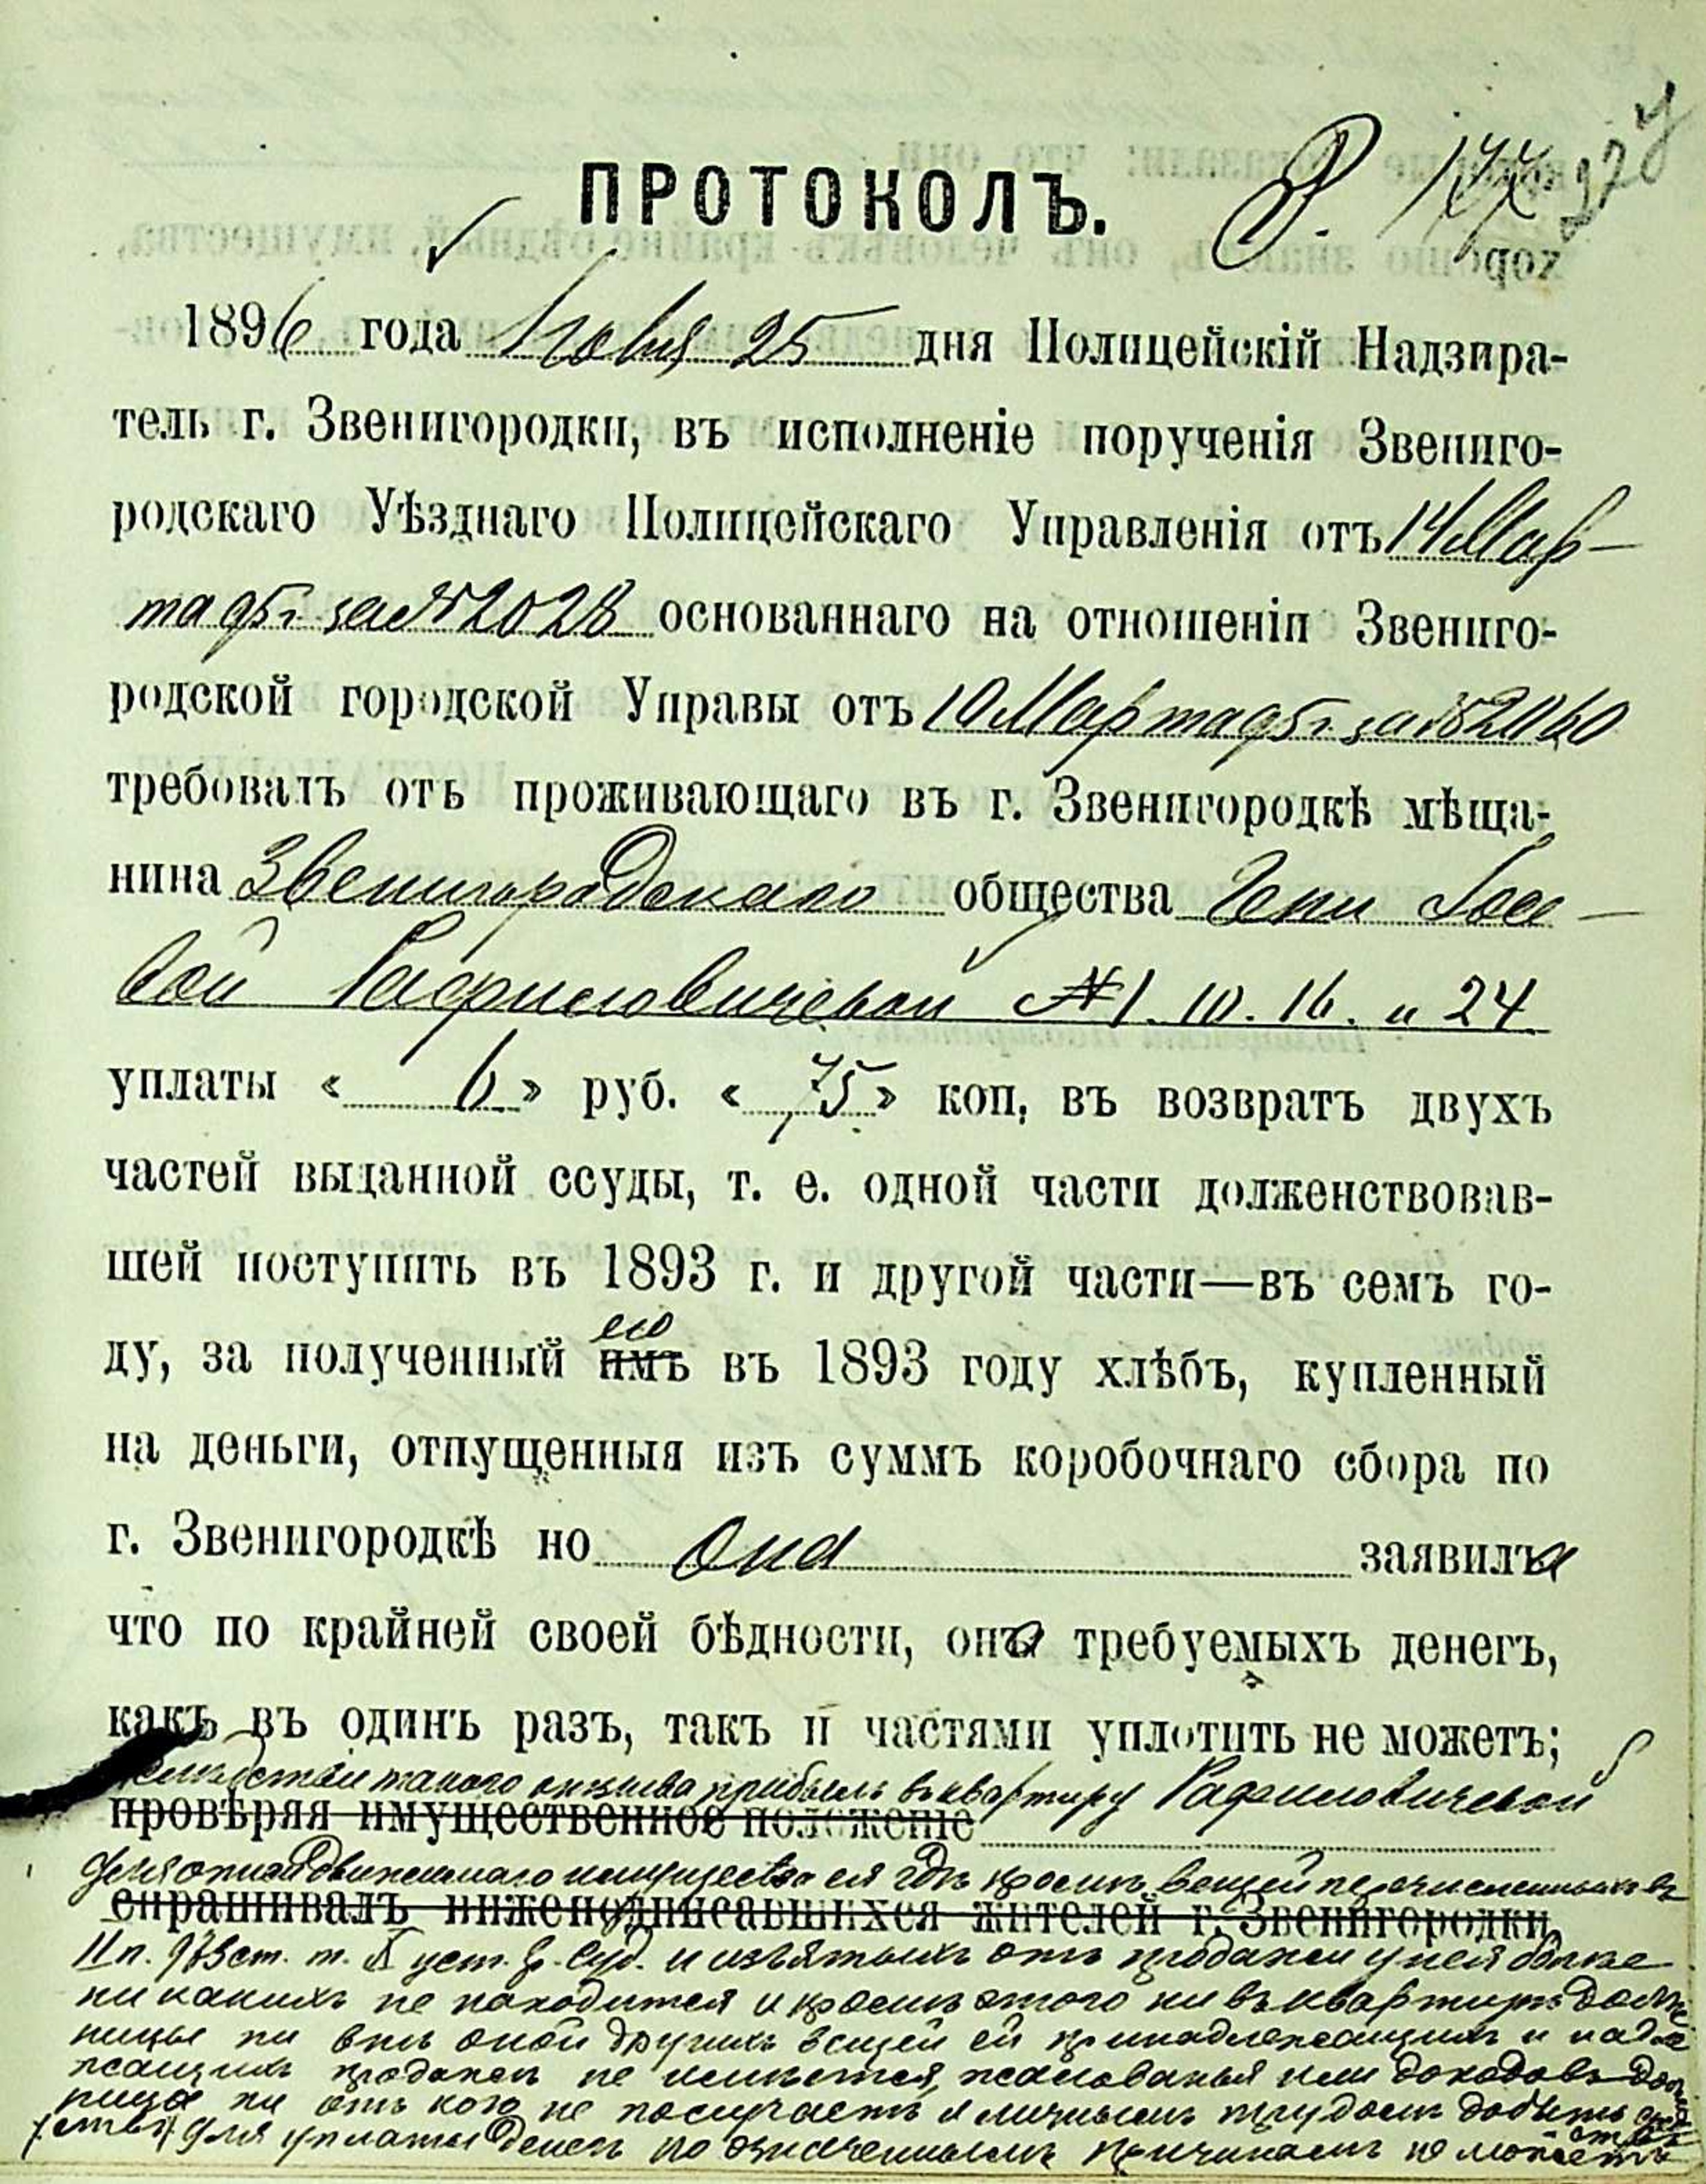 ПРОТОКОЛЪ.
1896 года Іюня 25 дня Полицейскій Надзира-
тель г. Звенигородки, въ исполненіе порученія Звениго-
родскаго Уѣзднаго Полицейскаго Управленія отъ 14 Мар-
та 95 г. за № 2028 основаннаго на отношеніи Звениго-
родской городской Управы отъ 10 Марта 95 г. за №
требовалъ отъ проживающаго въ г. Звенигородкѣ мѣща-
нина Звенигородскаго общества
№ 1. 10. 16. и 24
уплаты « 6 » руб. « 75 » коп, въ возвратъ двухъ
частей выданной ссуды, т. е. одной части долженствовав-
шей поступить въ 1893 г. и другой части—въ семъ го-
ду, за полученный имъ ею въ 1893 году хлѣбъ, купленный
на деньги, отпущенныя изъ суммъ коробочнаго сбора по
г. Звенигородкѣ но Она заявила
что по крайней своей бѣдности, она требуемыхъ денегъ,
какъ въ одинъ разъ, такъ и частями уплотить не можетъ;
такого отзыва прибылъ въ квартиру Рафиловичевой
провѣряя имущественное положеніе
для описи движимаго имущества ея гдѣ кромѣ вещей перечисленныхъ въ
спрашивалъ нижеподписавшихся жителей г. Звенигородки,
II п. 973 ст. т. X уст. гр. суд. и изъятыхъ отъ продажи у нея болѣе
никакихъ не находится и кромѣ этого ни въ квартирѣ должни-
ницы ни внѣ оной другихъ вещей ей принадлежащихъ и подле
жащихъ продажѣ не имѣется, жалованья или доходовъ
ни отъ кого не получаетъ и личнымъ трудомъ добыть
для уплаты денегъ по означеннымъ причинамъ не можетъ